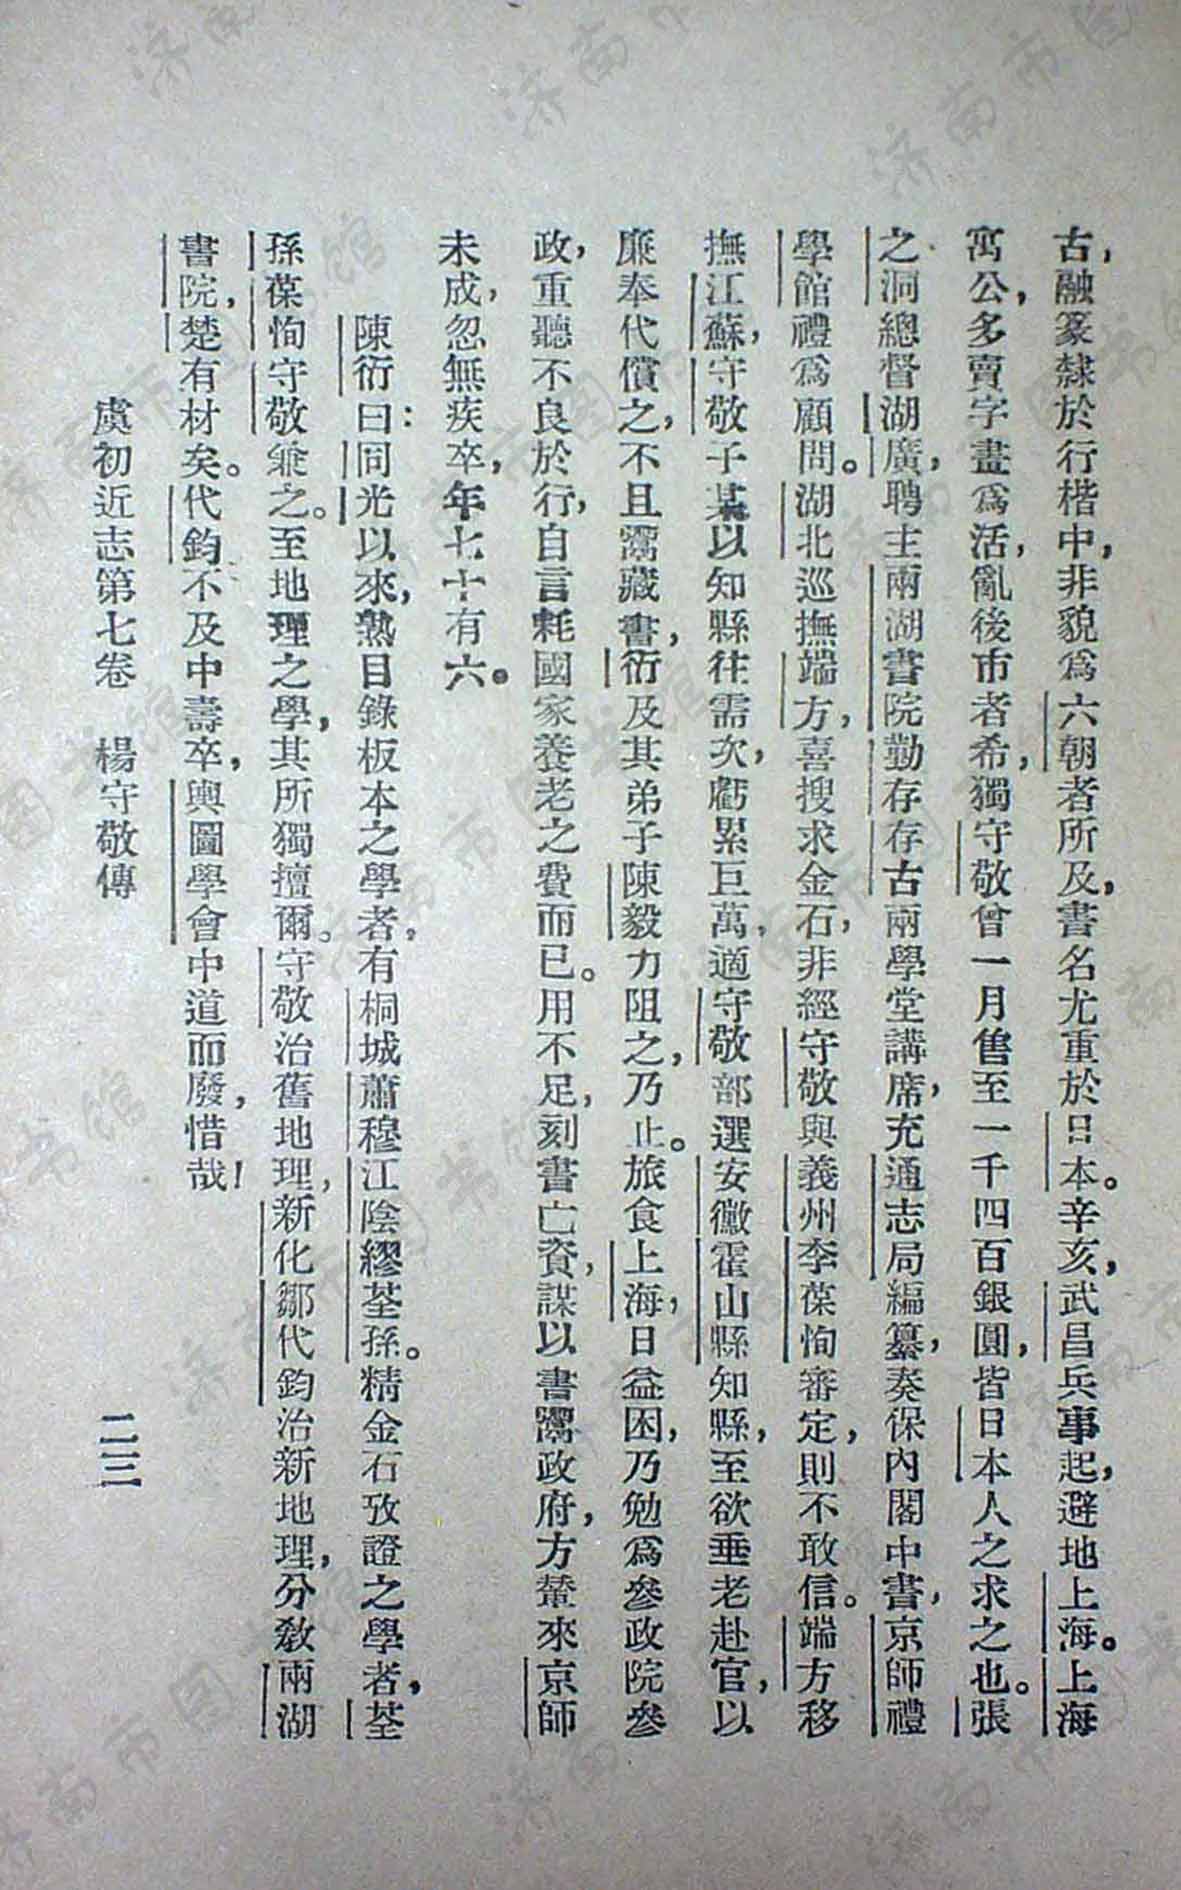 古，融篆隸於行楷中，非貌爲六朝者所及，書名尤重於日本。辛亥，武昌兵事起，避地上海。上海
寓公，多賣字畫爲活，亂後市者希，獨守敬曾一月售至一千四百銀圓，皆日本人之求之也。張
之洞總督湖廣，聘主兩湖書院勤存存古兩學堂講席，充通志局編纂，奏保內閣中書，京師禮
學館禮爲顧問。湖北巡撫端方，喜搜求金石，非經守敬與義州李葆恂審定，則不敢信。端方移
撫江蘇，守敬子某以知縣往需次，虧累巨萬，適守敬部選安徽霍山縣知縣，至欲垂老赴官，以
廉奉代償之，不且鬻藏書，衍及其弟子陳毅力阻之，乃止。旅食上海，日益困，乃勉爲參政院參
政，重聽不良於行，自言耗國家養老之費而已。用不足，刻書亡資，謀以書鬻政府，方輦來京師
未成，忽無疾卒，年七十有六。
陳衍曰：同光以來，熟目錄板本之學者，有桐城蕭穆江陰繆荃孫。精金石攷證之學者，荃
孫葆恂守敬兼之。至地理之學，其所獨擅爾。守敬治舊地理，新化鄒代鈞治新地理，分敎兩湖
書院，楚有材矣。代鈞不及中壽卒，輿圖學會中道而廢，惜哉！
虞初近志第七卷　楊守敬傳　二三
济南市图书馆